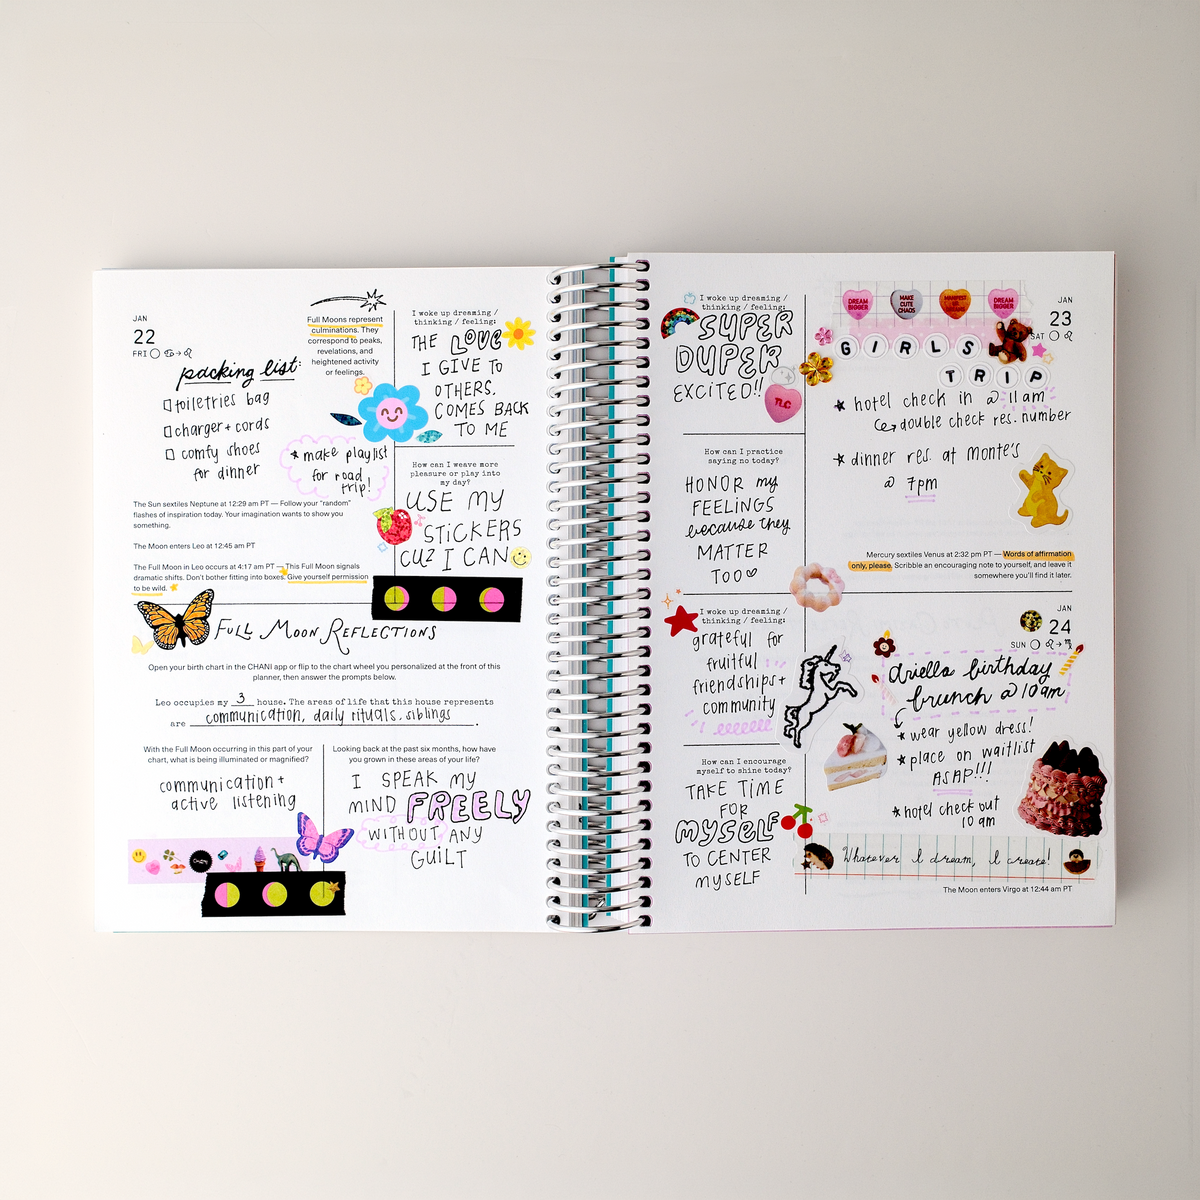 JAN
22
FRI
packing list:
toiletries bag
charger + cords
comfy shoes
for dinner
Full Moons represent
culminations. They
correspond to peaks,
revelations, and
heightened activity
or feelings.
* make playlist
for road
trip!
The Sun sextiles Neptune at 12:29 am PT — Follow your "random"
flashes of inspiration today. Your imagination wants to show you
something.
The Moon enters Leo at 12:45 am PT
The Full Moon in Leo occurs at 4:17 am PT — This Full Moon signals
dramatic shifts. Don't bother fitting into boxes. Give yourself permission
to be wild.
I woke up dreaming /
thinking / feeling:
THE LOVE
I GIVE TO
OTHERS.
COMES BACK
TO ME
How can I weave more
pleasure or play into
my day?
USE MY
STICKERS
CUZ I CAN
FULL MOON REFLECTIONS
Open your birth chart in the CHANI app or flip to the chart wheel you personalized at the front of this
planner, then answer the prompts below.
Leo occupies my 3 house. The areas of life that this house represents
are communication, daily rituals, siblings.
With the Full Moon occurring in this part of your
chart, what is being illuminated or magnified?
communication +
active listening
Looking back at the past six months, how have
you grown in these areas of your life?
I SPEAK MY
MIND FREELY
WITHOUT ANY
GUILT
I woke up dreaming /
thinking / feeling:
SUPER
DUPER
EXCITED!!
TLC
How can I practice
saying no today?
HONOR my
FEELINGS
because they
MATTER
TOO
DREAM BIGGER
MAKE CUTE CHAOS
DREAM BIGGER
JAN
23
SAT
GIRLS
TRIP
* hotel check in @ 11am
double check res. number
* dinner res. at monte's
@ 7pm
Mercury sextiles Venus at 2:32 pm PT — Words of affirmation
only, please. Scribble an encouraging note to yourself, and leave it
somewhere you'll find it later.
I woke up dreaming /
thinking / feeling:
grateful for
fruitful
friendships +
community
How can I encourage
myself to shine today?
TAKE TIME
FOR
MYSELF
TO CENTER
MYSELF
JAN
24
SUN
ariella birthday
brunch @ 10am
* wear yellow dress!
* place on waitlist
ASAP!!!
* hotel check out
10 am
Whatever I dream, I create!
The Moon enters Virgo at 12:44 am PT